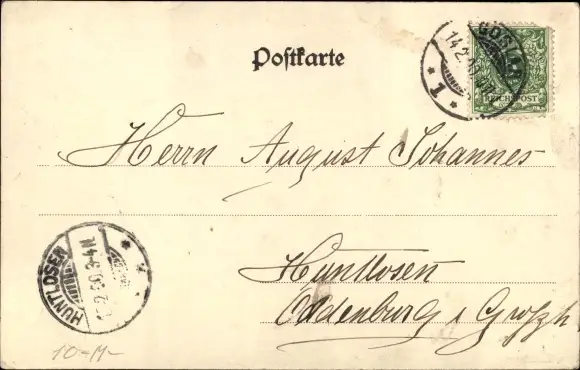 Postkarte
GOSLAR
14.2.
* 1 *
REICHSPOST
Herrn August Johannes
Huntlosen
Oldenburg i Großh
HUNTLOSEN
3-4N
* *
10-M-